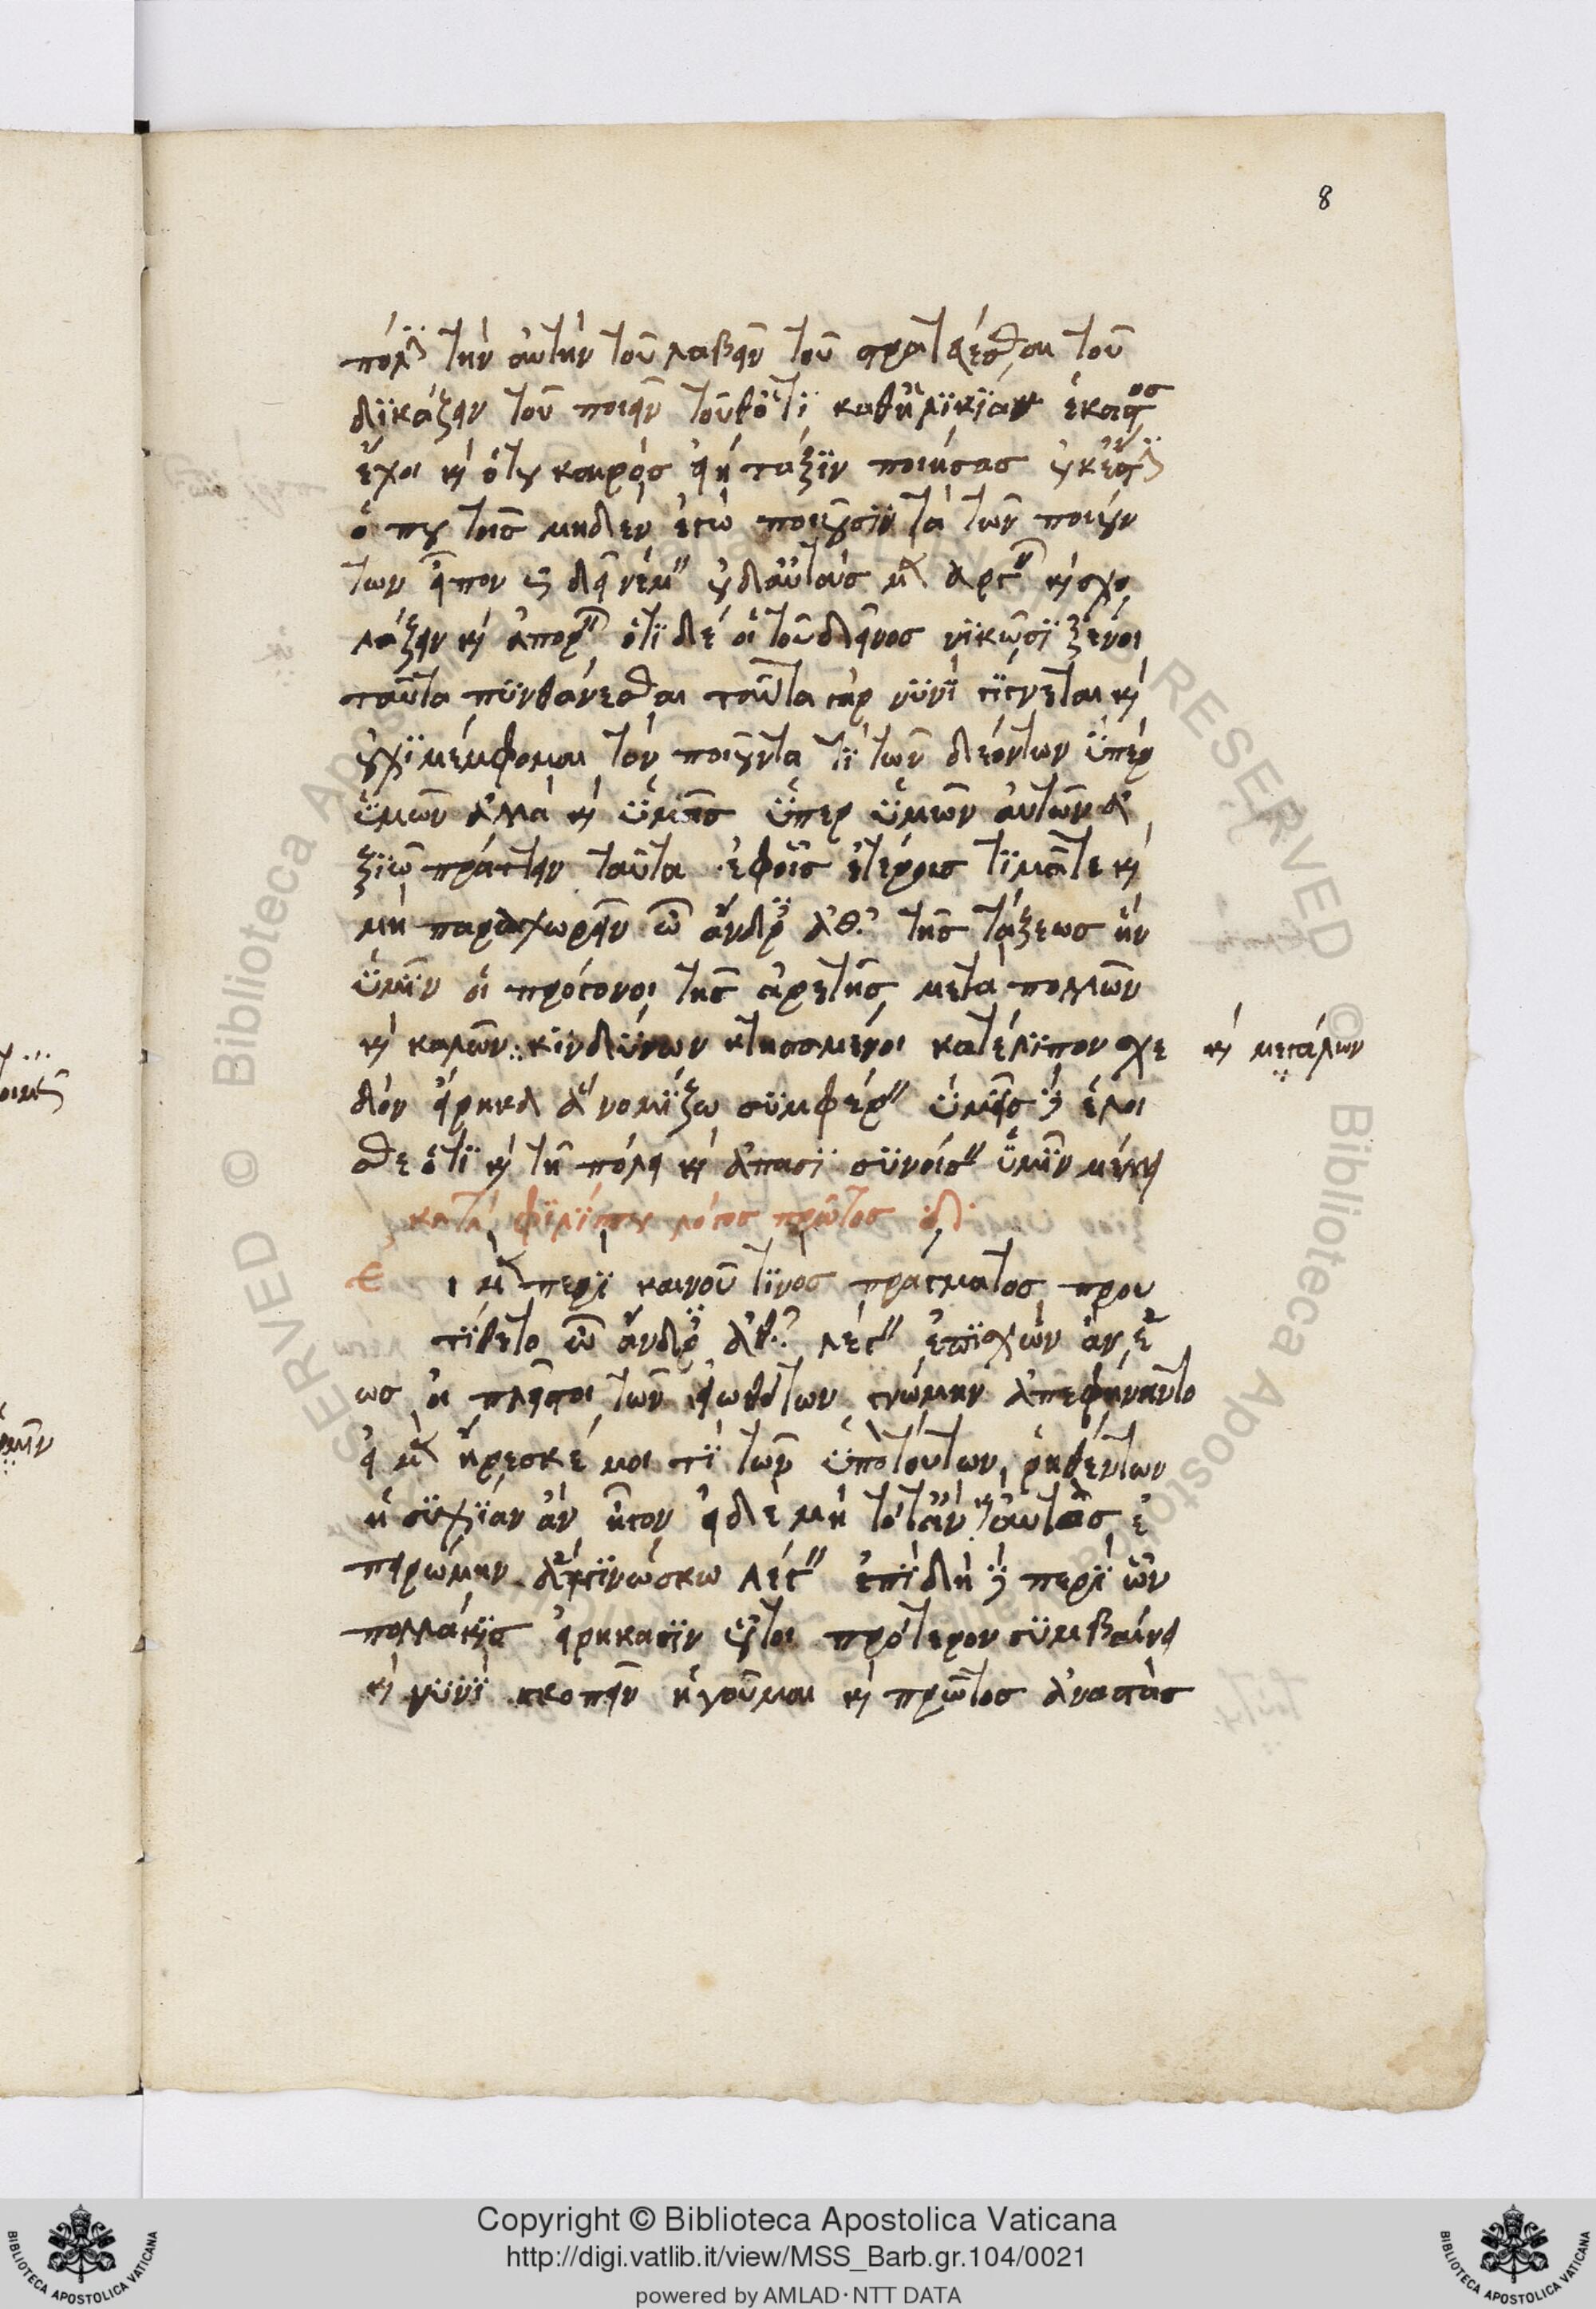 8
πόλιν τὴν αὐτὴν τοῦ λαβεῖν τοῦ στρατεύεσθαι τοῦ
δικάζειν τοῦ ποιεῖν τοῦθ ὅτι καθ ἡλικίαν ἕκαστος
ἔχοι καὶ ὅτου καιρός εἴη τάξιν ποιήσας οὐκ ἔστιν
ὅπου τοῖς μηδὲν ἐγὼ ποιοῦσιν τὰ τῶν ποιούν
των εἶπον ὡς δεῖ νέμειν οὐδ αὐτοὺς μὲν ἀργεῖν καὶ σχο
λάζειν καὶ ἀπορεῖν ὅτι δὲ οἱ τοῦ δεῖνος νικῶσι ξένοι
ταῦτα πυνθάνεσθαι ταῦτα γὰρ νυνὶ γίγνεται καὶ
οὐχὶ μέμφομαι τὸν ποιοῦντα τι τῶν δεόντων ὑπὲρ
ὑμῶν ἀλλὰ καὶ ὑμᾶς ὑπὲρ ὑμῶν αὐτῶν ἀ
ξιῶ πράττειν ταῦτα ἐφ οἷς ἑτέρους τιμᾶτε καὶ
μὴ παραχωρεῖν ὦ ἄνδρες ἀθ. τῆς τάξεως ἣν
ὑμῖν οἱ πρόγονοι τῆς ἀρετῆς μετὰ πολλῶν
καὶ καλῶν κινδύνων κτησαμένοι κατέλιπον σχε
καὶ μεγάλων
δὸν εἴρηκα ἃ νομίζω συμφέρειν ὑμεῖς δ ἕλοι
σθε ὅτι καὶ τῇ πόλει καὶ ἅπασι συνοίσειν ὑμῖν μέλλει
κατὰ φιλίππου λόγος πρῶτος
Ε ι μὲν περὶ καινοῦ τινος πράγματος πρου
τίθετο ὦ ἄνδρες ἀθ. λέγειν ἐπισχὼν ἂν ἕ
ως οἱ πλεῖστοι τῶν εἰωθότων γνώμην ἀπεφήναντο
εἰ μὲν ἤρεσκέ μοι τι τῶν ὑπὸ τούτων ῥηθέντων
ἡσυχίαν ἂν ἦγον εἰ δὲ μὴ τότ ἂν καὶ αὐτὸς ἐ
πειρώμην ἃ γινώσκω λέγειν ἐπειδὴ δὲ περὶ ὧν
πολλάκις εἰρήκασιν οὗτοι πρότερον συμβαίνει
καὶ νυνὶ σκοπεῖν ἡγοῦμαι καὶ πρῶτος ἀναστὰς
Copyright © Biblioteca Apostolica Vaticana
http://digi.vatlib.it/view/MSS_Barb.gr.104/0021
powered by AMLAD·NTT DATA